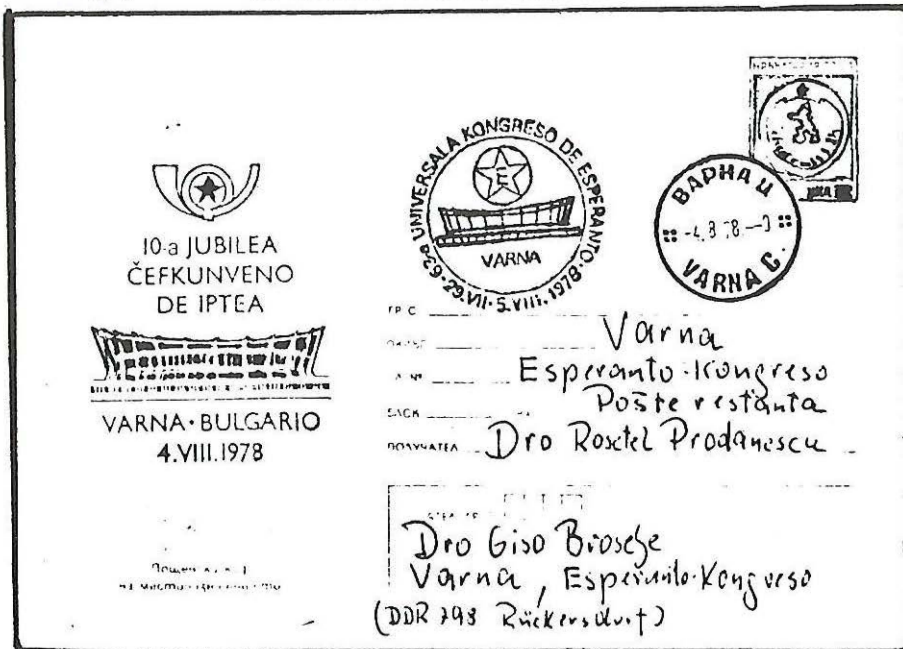 10-a JUBILEA
ĈEFKUNVENO
DE IPTEA
VARNA·BULGARIO
4.VIII.1978
63-a UNIVERSALA KONGRESO DE ESPERANTO · 29.VII - 5.VIII.1978
E
VARNA
ВАРНА Ц
-4.8 78.
VARNA C.
Varna
Esperanto-Kongreso
Poŝte restanta
ПОЛУЧАТЕЛ Dro Rosetel Prodanescu
Dro Giso Brosche
Varna, Esperanto-Kongreso
(DDR 798 Rückersdorf)